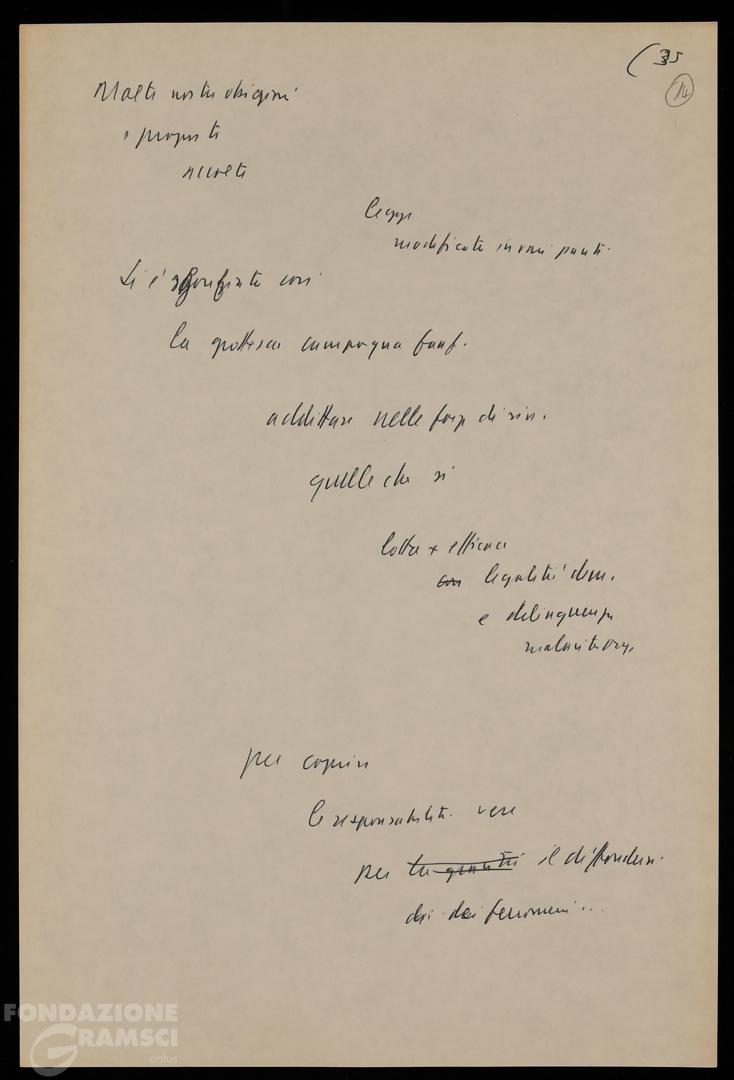 (35
14
Molte nostre obiezioni
e proposte
accolte
legge
modificata in vari punti.
Si è sgonfiata così
la grottesca campagna fanf.
additare nelle forze di sin.
quelle che si
lotta + efficace
con legalità dem.
e delinquenza
per coprire
le responsabilità vere
per la gravità il diffondersi
dei fenomeni...
FONDAZIONE
GRAMSCI
onlus